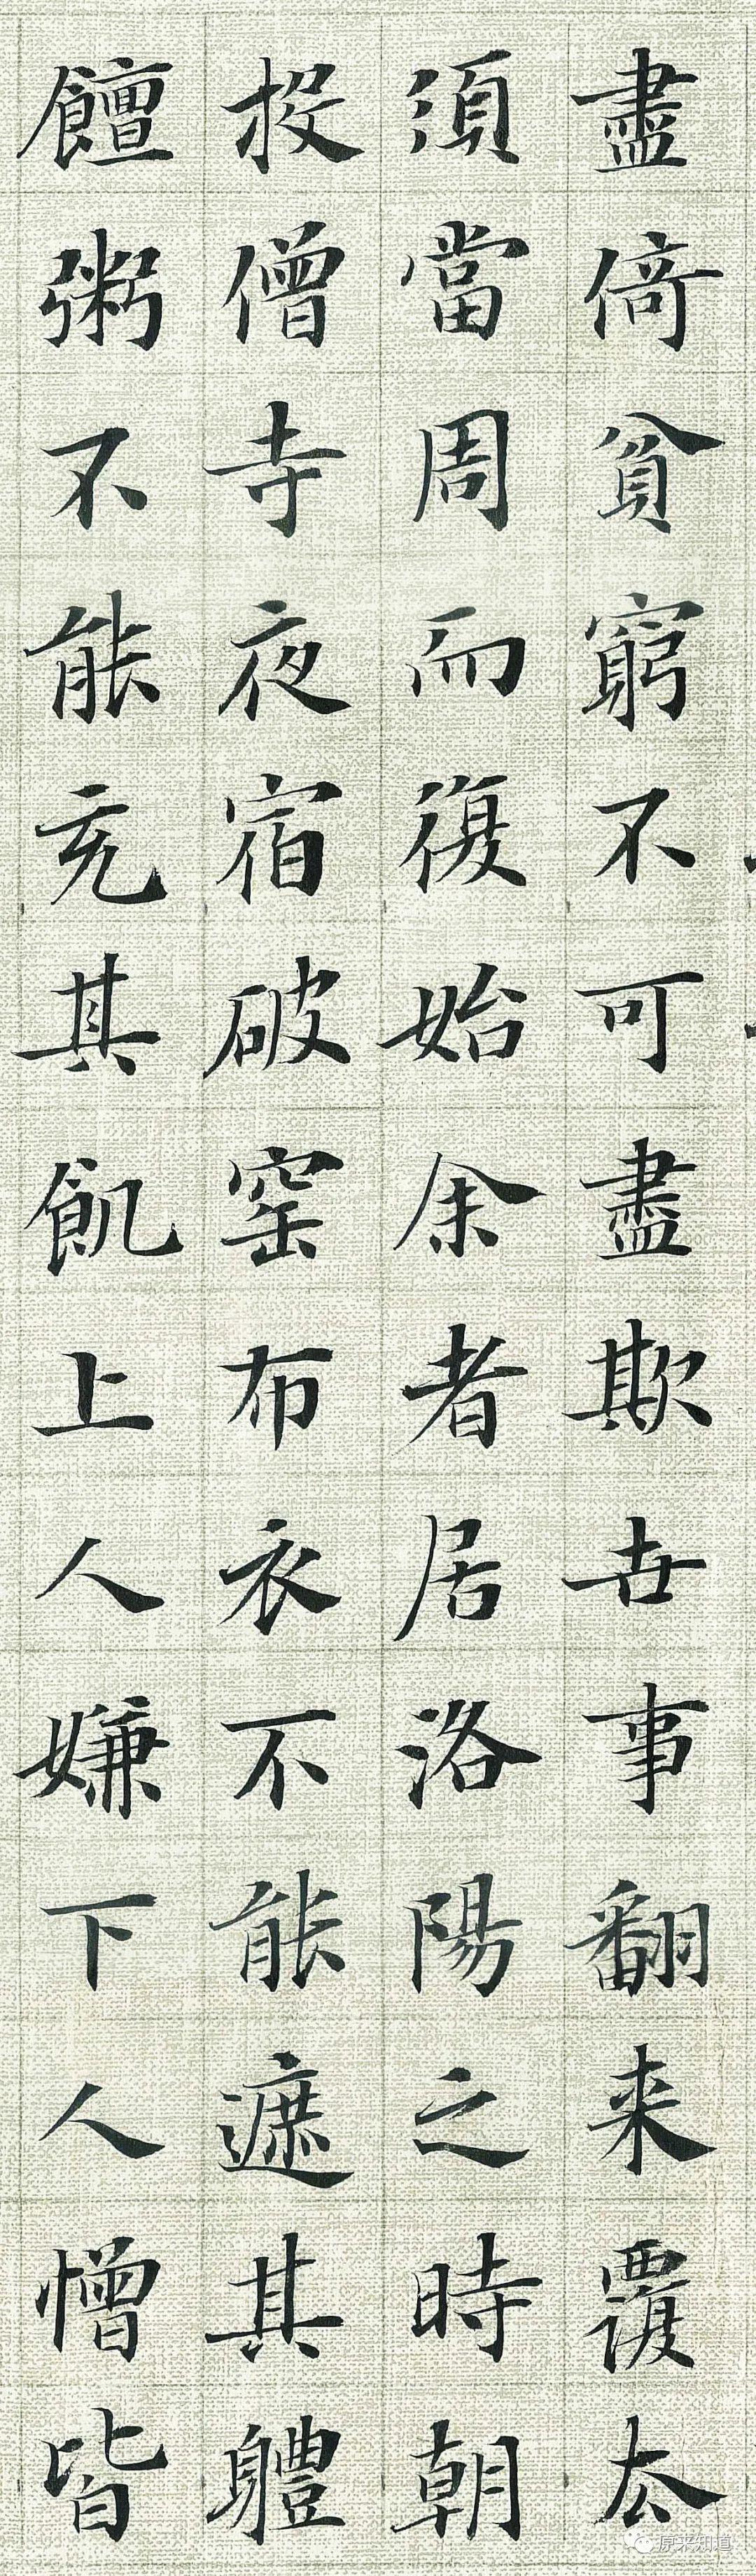 盡倚貧窮不可盡欺世事翻来覆去
須當周而復始余者居洛陽之時朝
投僧寺夜宿破窑布衣不能遮其體
饘粥不能充其飢上人嫌下人憎皆
原来知道